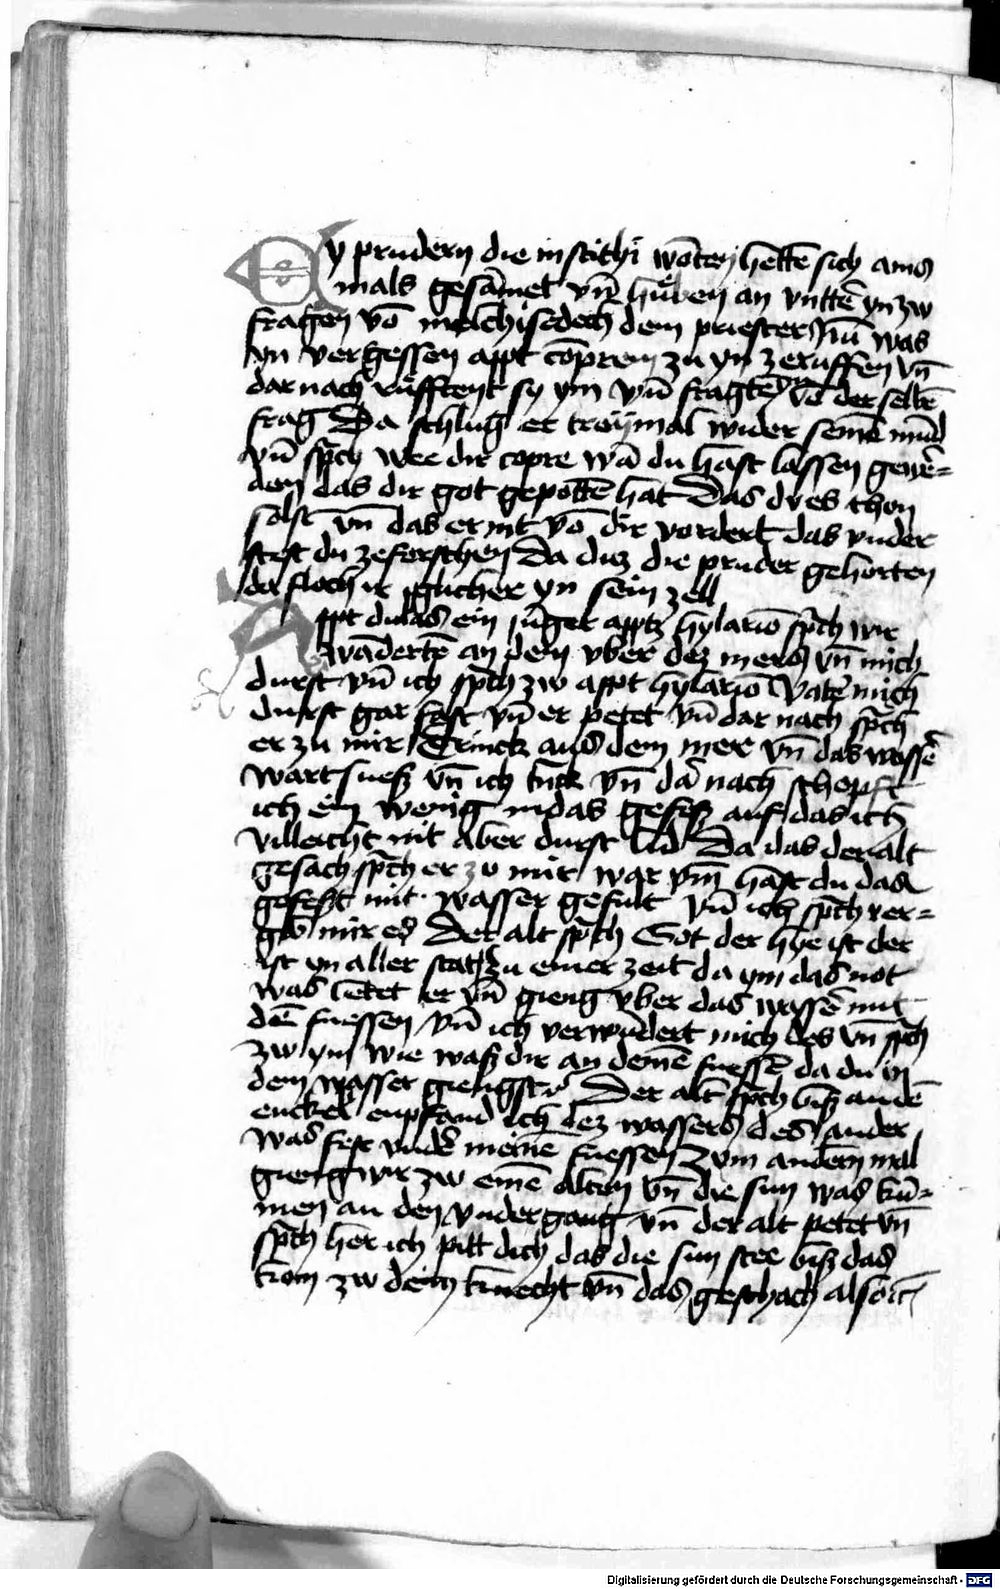 Dy prudern die in scithi wōten hettē sich ains
mals gesāmet vn̄ hůben an vnttē yn zw
fragen vō melchisedech dem priester Nū was
yn vergessen appt cōprem zu yn zeruffen vn̄
dar nach růfftent sy ym vn̄ fragtē yn vō der selbē
frag Da schlug er treymal wider seinē mūd
vn̄ sp̄ch wee dir copre wā du hast lassen
das dir got gepottē hat Das dves thon
solst vn̄ das er nit vō dir vordert das vnder
stest du zeforschen Da diz die pruder gehorten
da floch ir iglicher yn sein zell
Appt dulas ein iūger apptz hylario sp̄ch wir
wādertē an dem vber dez mers vn̄ mich
durst vn̄ ich sp̄ch zw appt hylario Vater mich
durst gar fest vn̄ er petet vn̄ dar nach sp̄ch
er zu mir Trinck aus dem mer vn̄ das wasser
wart suesz vn̄ ich tn̄ck vn̄ dar nach schepft
ich ein wenig in das gefesz auf das ich
villeicht nit aber durst lid Da das der alt
gesach sp̄ch er zu mir war vm̄ hast du das
gefeszt mit wasser gefult vn̄ ich sp̄ch ver=
gib mir es Der alt sp̄ch Got der hye ist der
ist yn aller stat Zu einer zeit da ym das not
was petet er vn̄ gieng vber das wasser mit
dē fuessen vn̄ ich verwūdert mich des vn̄ sp̄ch
zw ym wie wasz dir an deinē fuessē da du in
dem wasser giengst Der alt sp̄ch bisz an dē
enckel enpfand ich dez wassers des ander
was fest vnder meinē fuessen Zum andern mal
gieng wir zw einē alten vn̄ die sun was kū=
men an den vndergang vn̄ der alt petet vn̄
sp̄ch her ich pitt dich das die sun stee bisz das
kom zw deim knecht vn̄ das geschach also
Digitalisierung gefördert durch die Deutsche Forschungsgemeinschaft - DFG